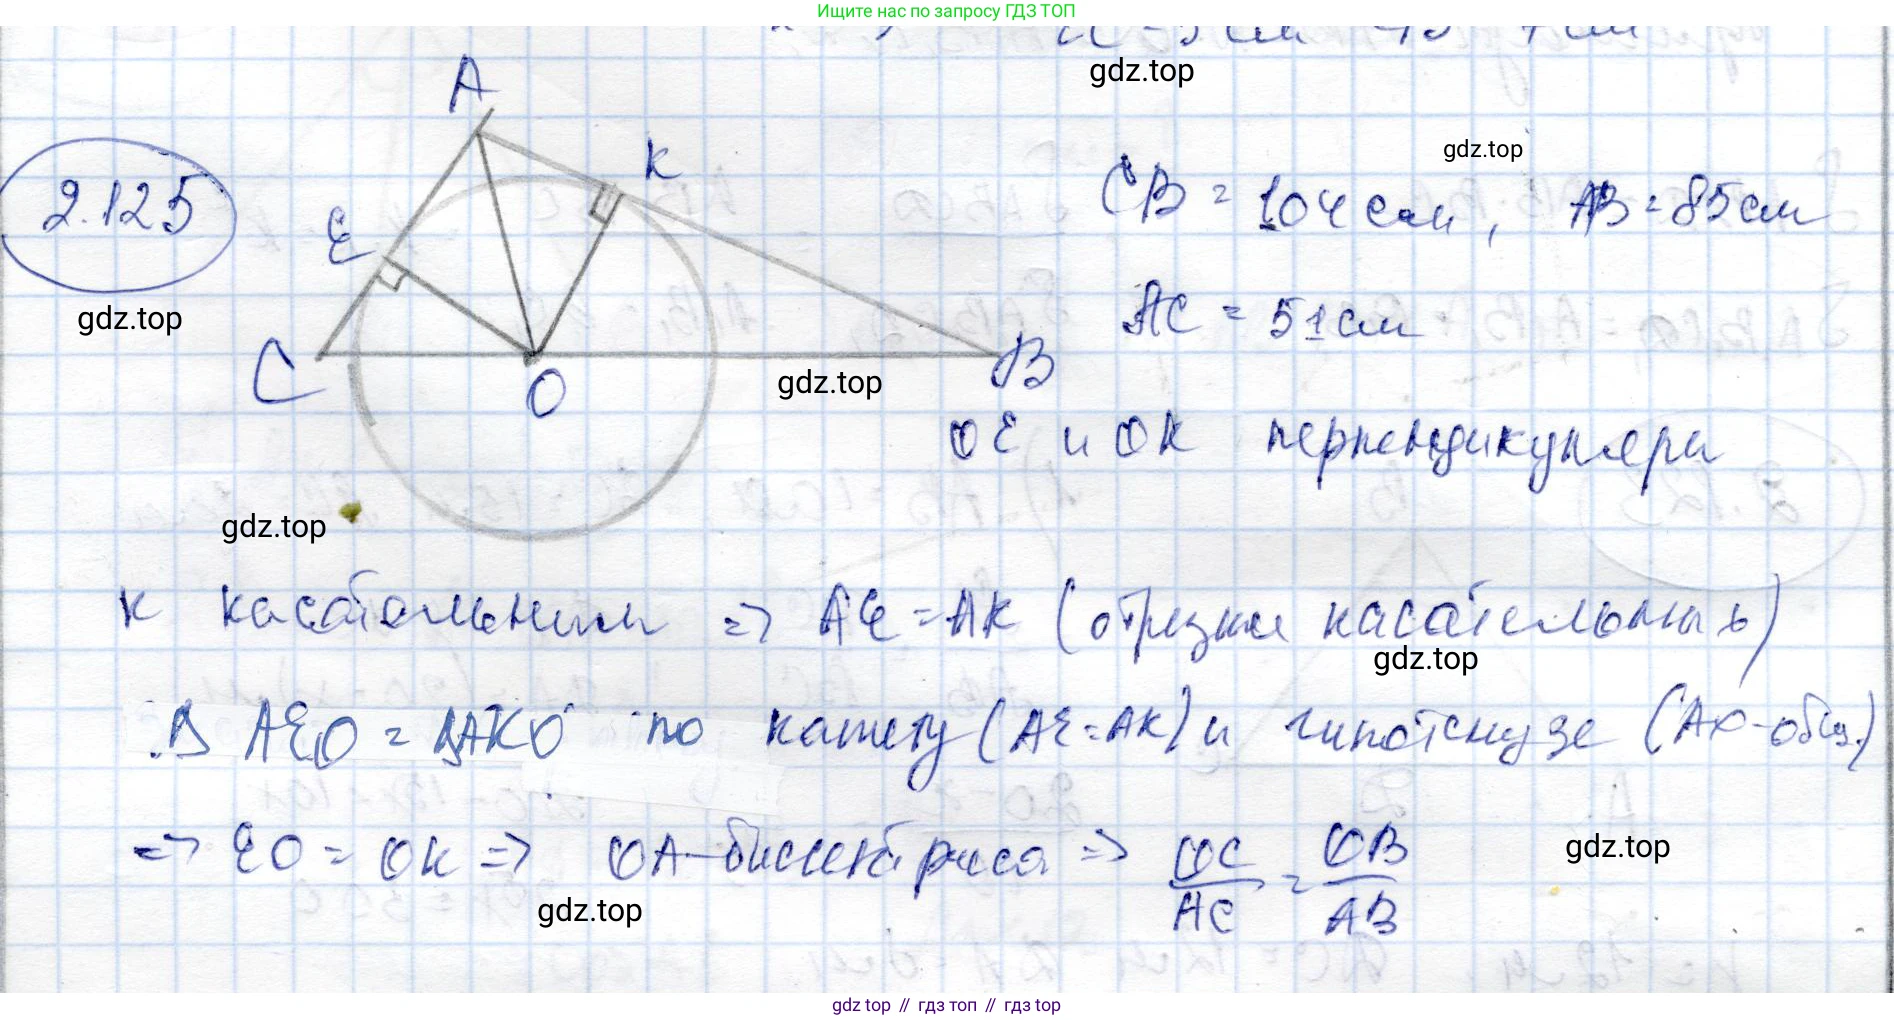 Ищите нас по запросу ГДЗ ТОП
gdz.top
A
K
2.125
gdz.top
CB = 104 см, AB = 85 см
E
gdz.top
AC = 51 см
C
O
gdz.top
B
OE и OK перпендикуляры
gdz.top
к касательным => AE = AK (отрезки касательных)
gdz.top
Δ AEO = ΔAKO по катету (AE = AK) и гипотенузе (AO - общ.)
=> EO = OK => OA - биссектриса => OC/AC = OB/AB
gdz.top
gdz.top
gdz top // гдз топ // гдз top